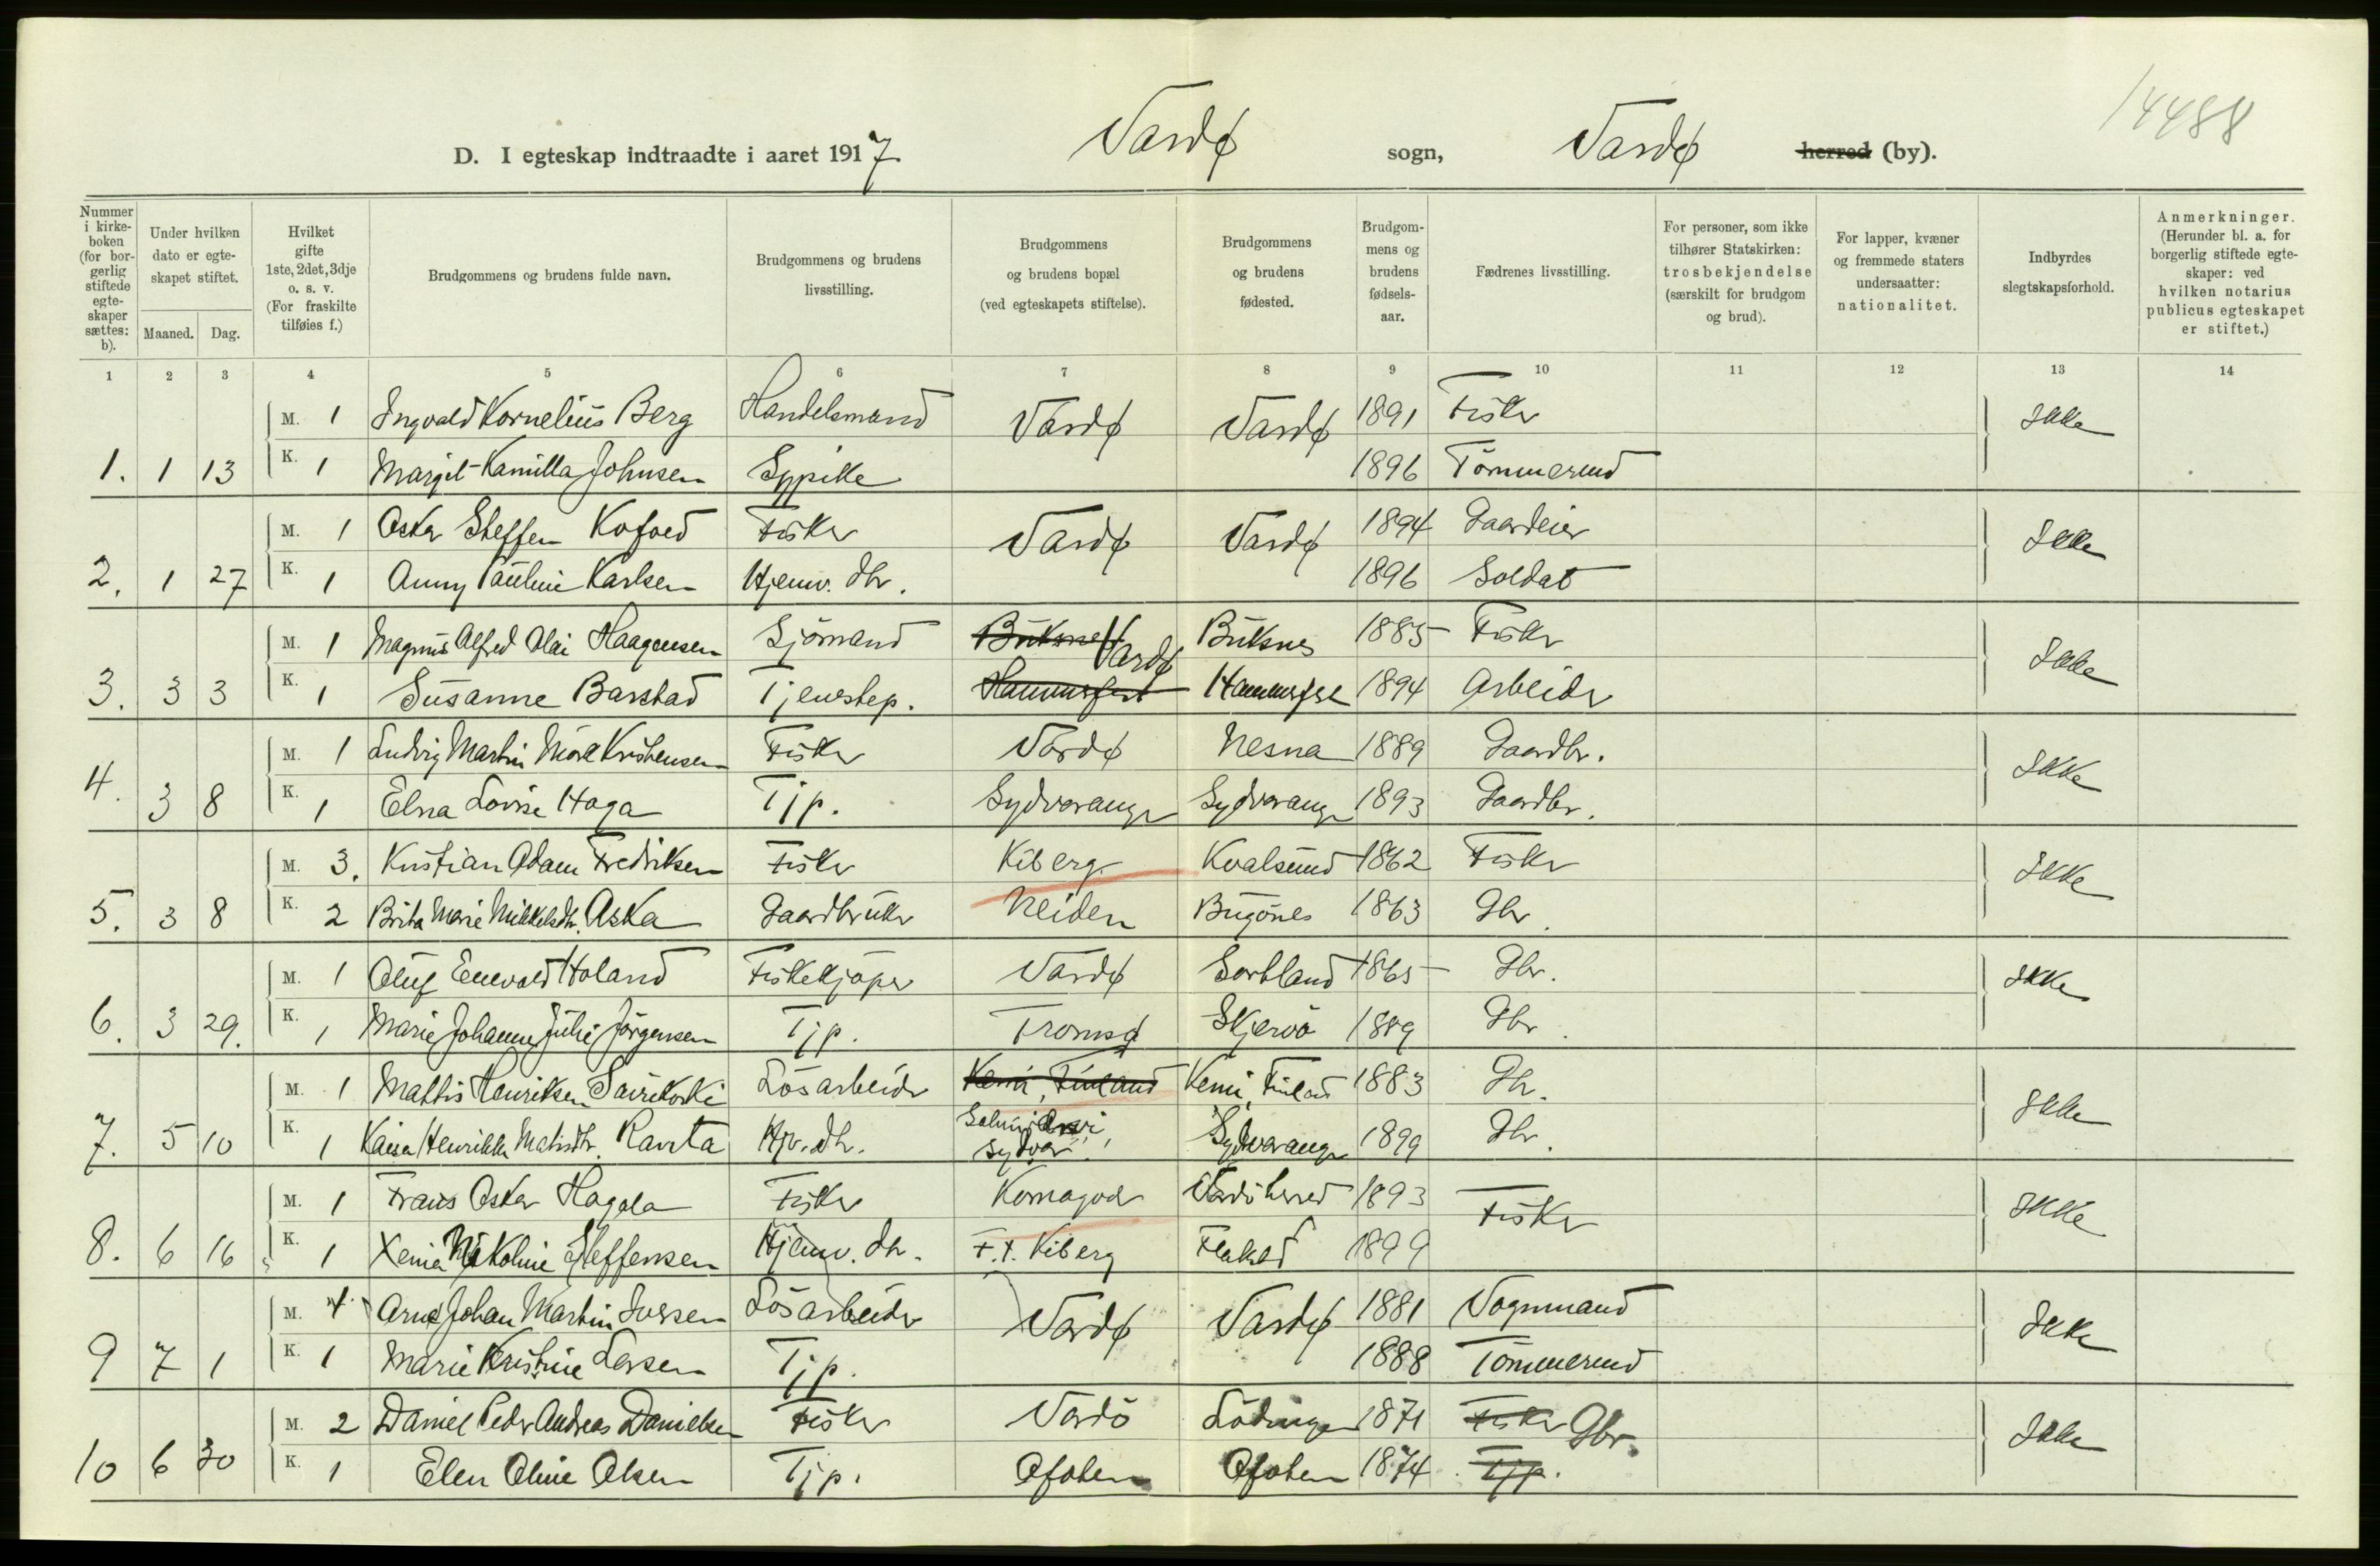 14488
D. I egteskap indtraadte i aaret 1917. Vardø sogn, Vardø herred (by).
Nummer i kirke-boken (for bor-gerlig stiftede egte-skaper sættes: b).
Under hvilken dato er egte-skapet stiftet.
Maaned. Dag.
Hvilket gifte 1ste, 2det, 3dje o. s. v. (For fraskilte tilføies f.)
Brudgommens og brudens fulde navn.
Brudgommens og brudens livsstilling.
Brudgommens og brudens bopæl (ved egteskapets stiftelse).
Brudgommens og brudens fødested.
Brudgom-mens og brudens fødsels-aar.
Fædrenes livsstilling.
For personer, som ikke tilhører Statskirken: trosbekjendelse (særskilt for brudgom og brud).
For lapper, kvæner og fremmede staters undersaatter: nationalitet.
Indbyrdes slegtskapsforhold.
Anmerkninger. (Herunder bl. a. for borgerlig stiftede egte-skaper: ved hvilken notarius publicus egteskapet er stiftet.)
1 2 3 4 5 6 7 8 9 10 11 12 13 14
M. 1 Ingvald Kornelius Berg Handelsmand Vardø Vardø 1891 Fisker Ikke
1. 1 13 K. 1 Margit Kamilla Johnsen Sypike 1896 Tömmermd
M. 1 Oskar Steffen Kofoed Fisker Vardø Vardø 1894 Gaardeier Ikke
2. 1 27 K. 1 Anny Pauline Karlsen Hjemv. dtr. 1896 Soldat
M. 1 Magnus Alfred Olai Haagensen Sjömand Buksnes Vardø Buksnes 1885 Fisker Ikke
3. 3 3 K. 1 Susanne Barstad Tjenestep. Hammerfest Hammerfest 1894 Arbeider
M. 1 Ludvig Martin Kristensen Fisker Vardø Nesna 1889 Gaardbr. Ikke
4. 3 8 K. 1 Elna Lovise Haga Tjp. Sydvaranger Sydvaranger 1893 Gaardbr.
M. 3. Kristian Adam Fredriksen Fisker Kiberg Kvalsund 1862 Fisker Ikke
5. 3 8 K. 2 Brita Marie Mikkelsdtr. Aska Gaardbruker Neiden Bugönes 1863 Gbr.
M. 1 Oluf Enevald Holand Fiskekjöper Vardø Sortland 1865 Gbr. Ikke
6. 3 29. K. 1 Marie Johanne Julie Jörgensen Tjp. Tromsø Skjervö 1889 Gbr.
M. 1 Mattis Henriksen Lösarbeider Kemi, Finland Kemi, Finland 1883 Gbr. Ikke
7. 5 10 K. 1 Kaisa Henrikke Matisdtr. Ravta Hjv. dtr. Sydvar. Sydvaranger 1899 Gbr.
M. 1 Frans Oskar Hagala Fisker Komagvær Vardö herred 1893 Fisker Ikke
8. 6 16 K. 1 Xenia Nikoline Steffensen Hjemv. dtr. F. t. Kiberg Flakstd 1899
M. 1 Arne Johan Martin Iversen Lösarbeider Vardø Vardø 1881 Vognmand Ikke
9 7 1 K. 1 Marie Kristine Larsen Tjp. 1888 Tömmermd
M. 2 Daniel Peder Andreas Danielsen Fisker Vardö Lödingen 1871 Fisker Gbr. Ikke
10 6 30 K. 1 Elen Oline Olsen Tjp. Ofoten Ofoten 1874 Tjp.